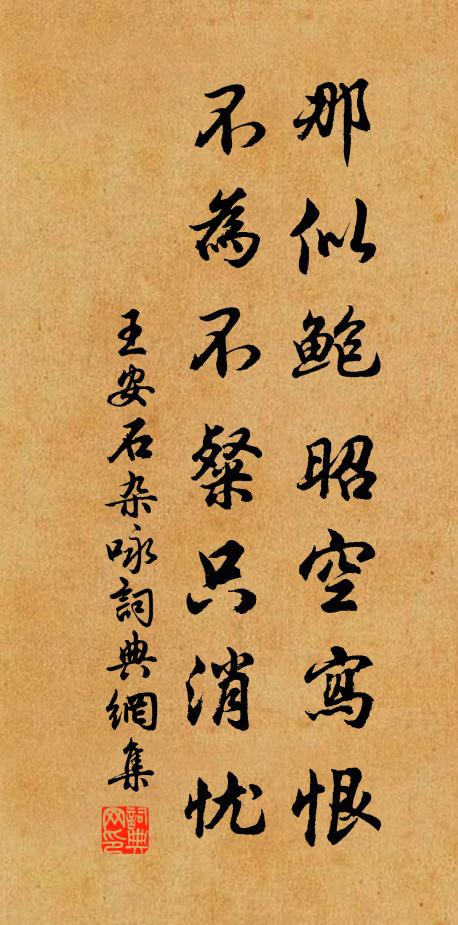 那似鮑昭空寫恨
不為不粲只消忧
王安石杂咏詞典網集
詞典网印